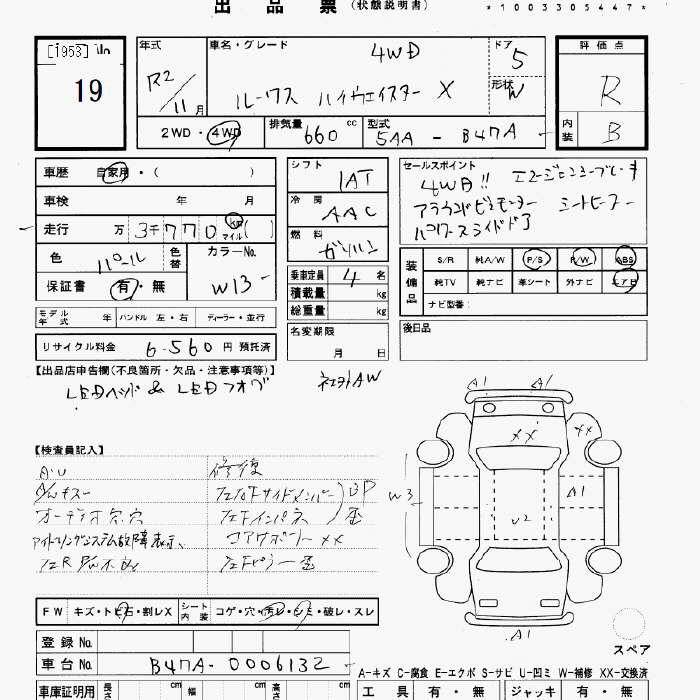 出品票 (状態説明書) *1003305447*
[1953]
19
年式 R2/11月
車名・グレード 4WD
ルークス ハイウェイスター X
ドア 5
形状 W
評価点 R
内装 B
2WD・4WD 排気量 660 cc 型式 5AA - B47A
車歴 自家用・( )
車検 年 月
走行 万 3千770 km マイル ( )
色 パール 色替 カラーNo. W13
保証書 有・無
モデル年式 年 ハンドル 左・右 ディーラー・並行
リサイクル料金 6,560 円 預託済
シフト IAT
冷房 AAC
燃料 ガソリン
乗車定員 4 名
積載量 kg
総重量 kg
名変期限 月 日
セールスポイント
4WD!!
アラウンドビューモニター シートヒーター
ハンズフリースライドドア
装備品 S/R 純A/W P/S P/W ABS
純TV 純ナビ 革シート 外ナビ エアB
ナビ型番:
後日品
【出品店申告欄(不良箇所・欠品・注意事項等)】
LEDヘッド & LEDフォグ
社外AW
【検査員記入】
A・U 修復
オーディオ欠、穴
アイドリングシステム故障表示、
コアサポート XX
A1 A1
XX XX
W3 A1
U2
A1
スペア
FW キズ・トビ石・割レX シート内装 コゲ・穴・汚レ・シミ・破レ・スレ
登録No.
車台No. B47A-0006132
A=キズ C=腐食 E=エクボ S=サビ U=凹ミ W=補修 XX=交換済
車庫証明用 長さ cm 幅 cm 高さ cm
工具 有・無 ジャッキ 有・無